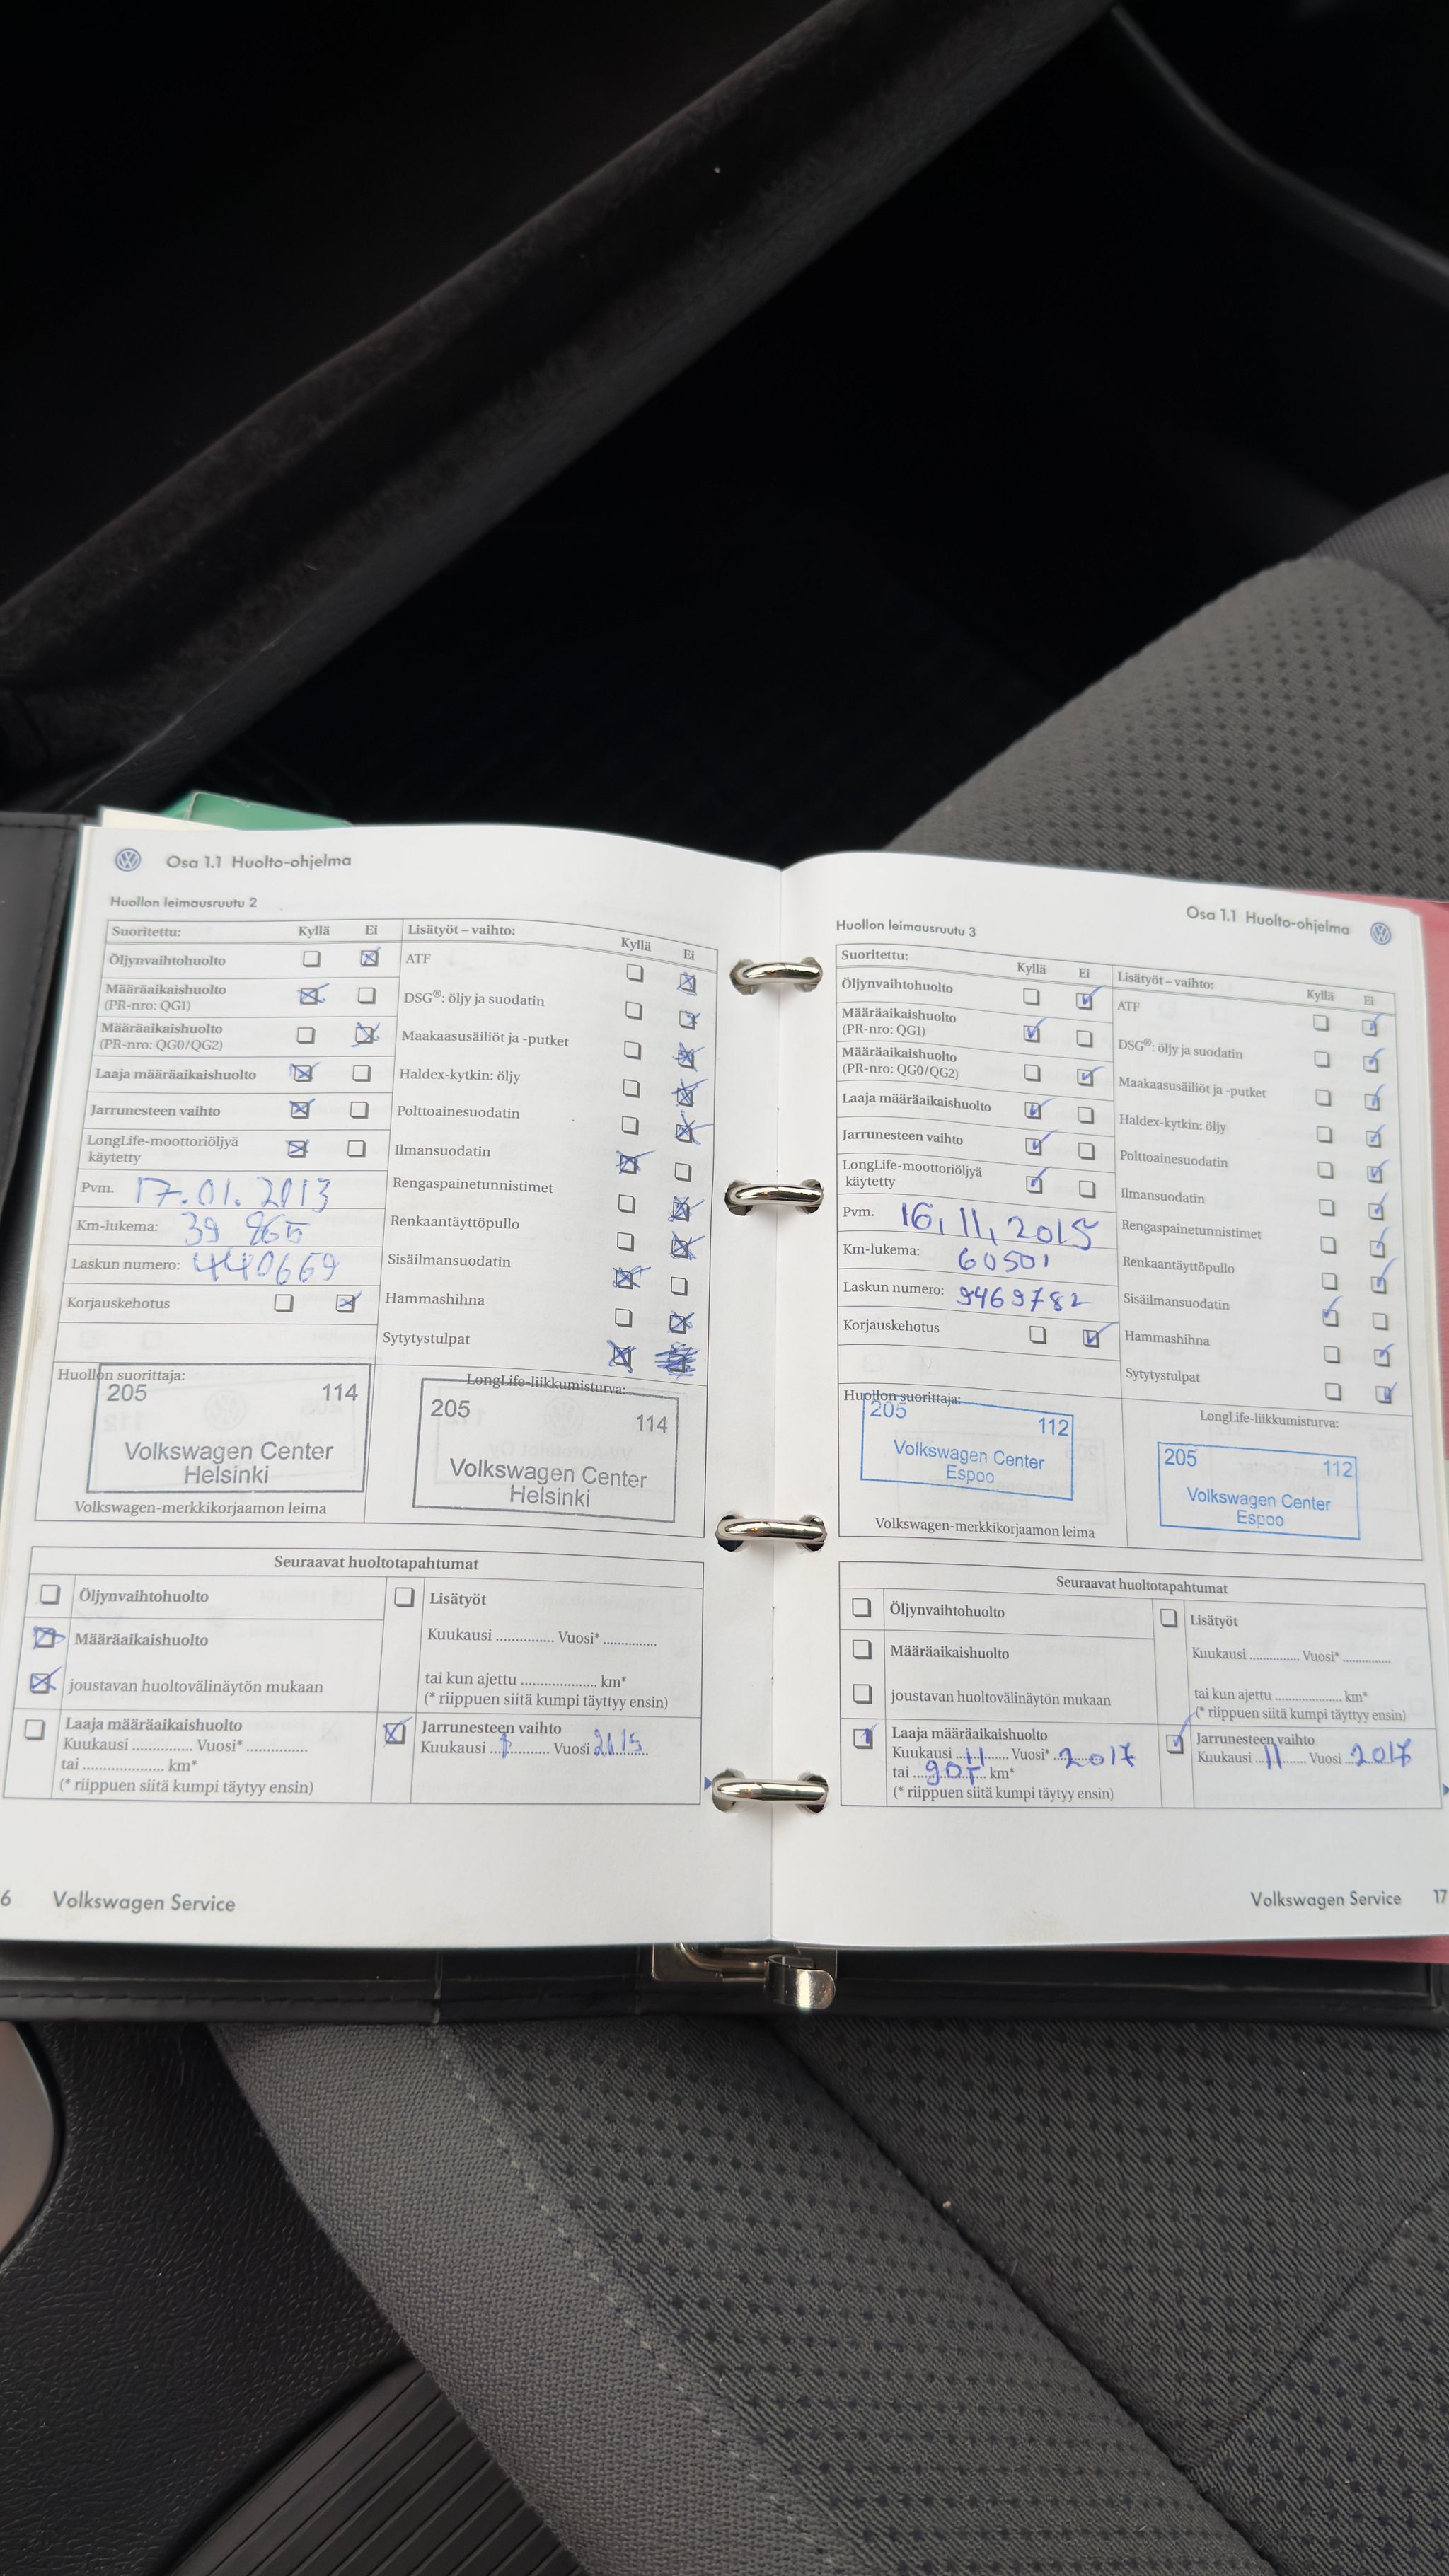 Osa 1.1 Huolto-ohjelma
Huollon leimausruutu 2
Suoritettu: Kyllä Ei
Öljynvaihtohuolto
Määräaikaishuolto
(PR-nro: QG1)
Määräaikaishuolto
(PR-nro: QG0/QG2)
Laaja määräaikaishuolto
Jarrunesteen vaihto
LongLife-moottoriöljyä
käytetty
Pvm. 17.01.2013
Km-lukema: 39
Laskun numero: 440669
Korjauskehotus
Lisätyöt – vaihto: Kyllä Ei
ATF
DSG®: öljy ja suodatin
Maakaasusäiliöt ja -putket
Haldex-kytkin: öljy
Polttoainesuodatin
Ilmansuodatin
Rengaspainetunnistimet
Renkaantäyttöpullo
Sisäilmansuodatin
Hammashihna
Sytytystulpat
Huollon suorittaja:
205 114
Volkswagen Center
Helsinki
Volkswagen-merkkikorjaamon leima
LongLife-liikkumisturva:
205 114
Volkswagen Center
Helsinki
Seuraavat huoltotapahtumat
Öljynvaihtohuolto
Määräaikaishuolto
joustavan huoltovälinäytön mukaan
Laaja määräaikaishuolto
Kuukausi .............. Vuosi* ..............
tai ................... km*
(* riippuen siitä kumpi täytyy ensin)
Lisätyöt
Kuukausi .............. Vuosi* .............
tai kun ajettu .................... km*
(* riippuen siitä kumpi täyttyy ensin)
Jarrunesteen vaihto
Kuukausi Vuosi 2015
6 Volkswagen Service
Osa 1.1 Huolto-ohjelma
Huollon leimausruutu 3
Suoritettu: Kyllä Ei
Öljynvaihtohuolto
Määräaikaishuolto
(PR-nro: QG1)
Määräaikaishuolto
(PR-nro: QG0/QG2)
Laaja määräaikaishuolto
Jarrunesteen vaihto
LongLife-moottoriöljyä
käytetty
Pvm. 16,11,2015
Km-lukema: 60501
Laskun numero: 9469782
Korjauskehotus
Lisätyöt – vaihto: Kyllä Ei
ATF
DSG®: öljy ja suodatin
Maakaasusäiliöt ja -putket
Haldex-kytkin: öljy
Polttoainesuodatin
Ilmansuodatin
Rengaspainetunnistimet
Renkaantäyttöpullo
Sisäilmansuodatin
Hammashihna
Sytytystulpat
Huollon suorittaja:
205 112
Volkswagen Center
Espoo
Volkswagen-merkkikorjaamon leima
LongLife-liikkumisturva:
205 112
Volkswagen Center
Espoo
Seuraavat huoltotapahtumat
Öljynvaihtohuolto
Määräaikaishuolto
joustavan huoltovälinäytön mukaan
Laaja määräaikaishuolto
Kuukausi 11 Vuosi* 2017
tai 90T km*
(* riippuen siitä kumpi täytyy ensin)
Lisätyöt
Kuukausi ............. Vuosi* .............
tai kun ajettu .................... km*
(* riippuen siitä kumpi täyttyy ensin)
Jarrunesteen vaihto
Kuukausi 11 Vuosi 2017
Volkswagen Service 17